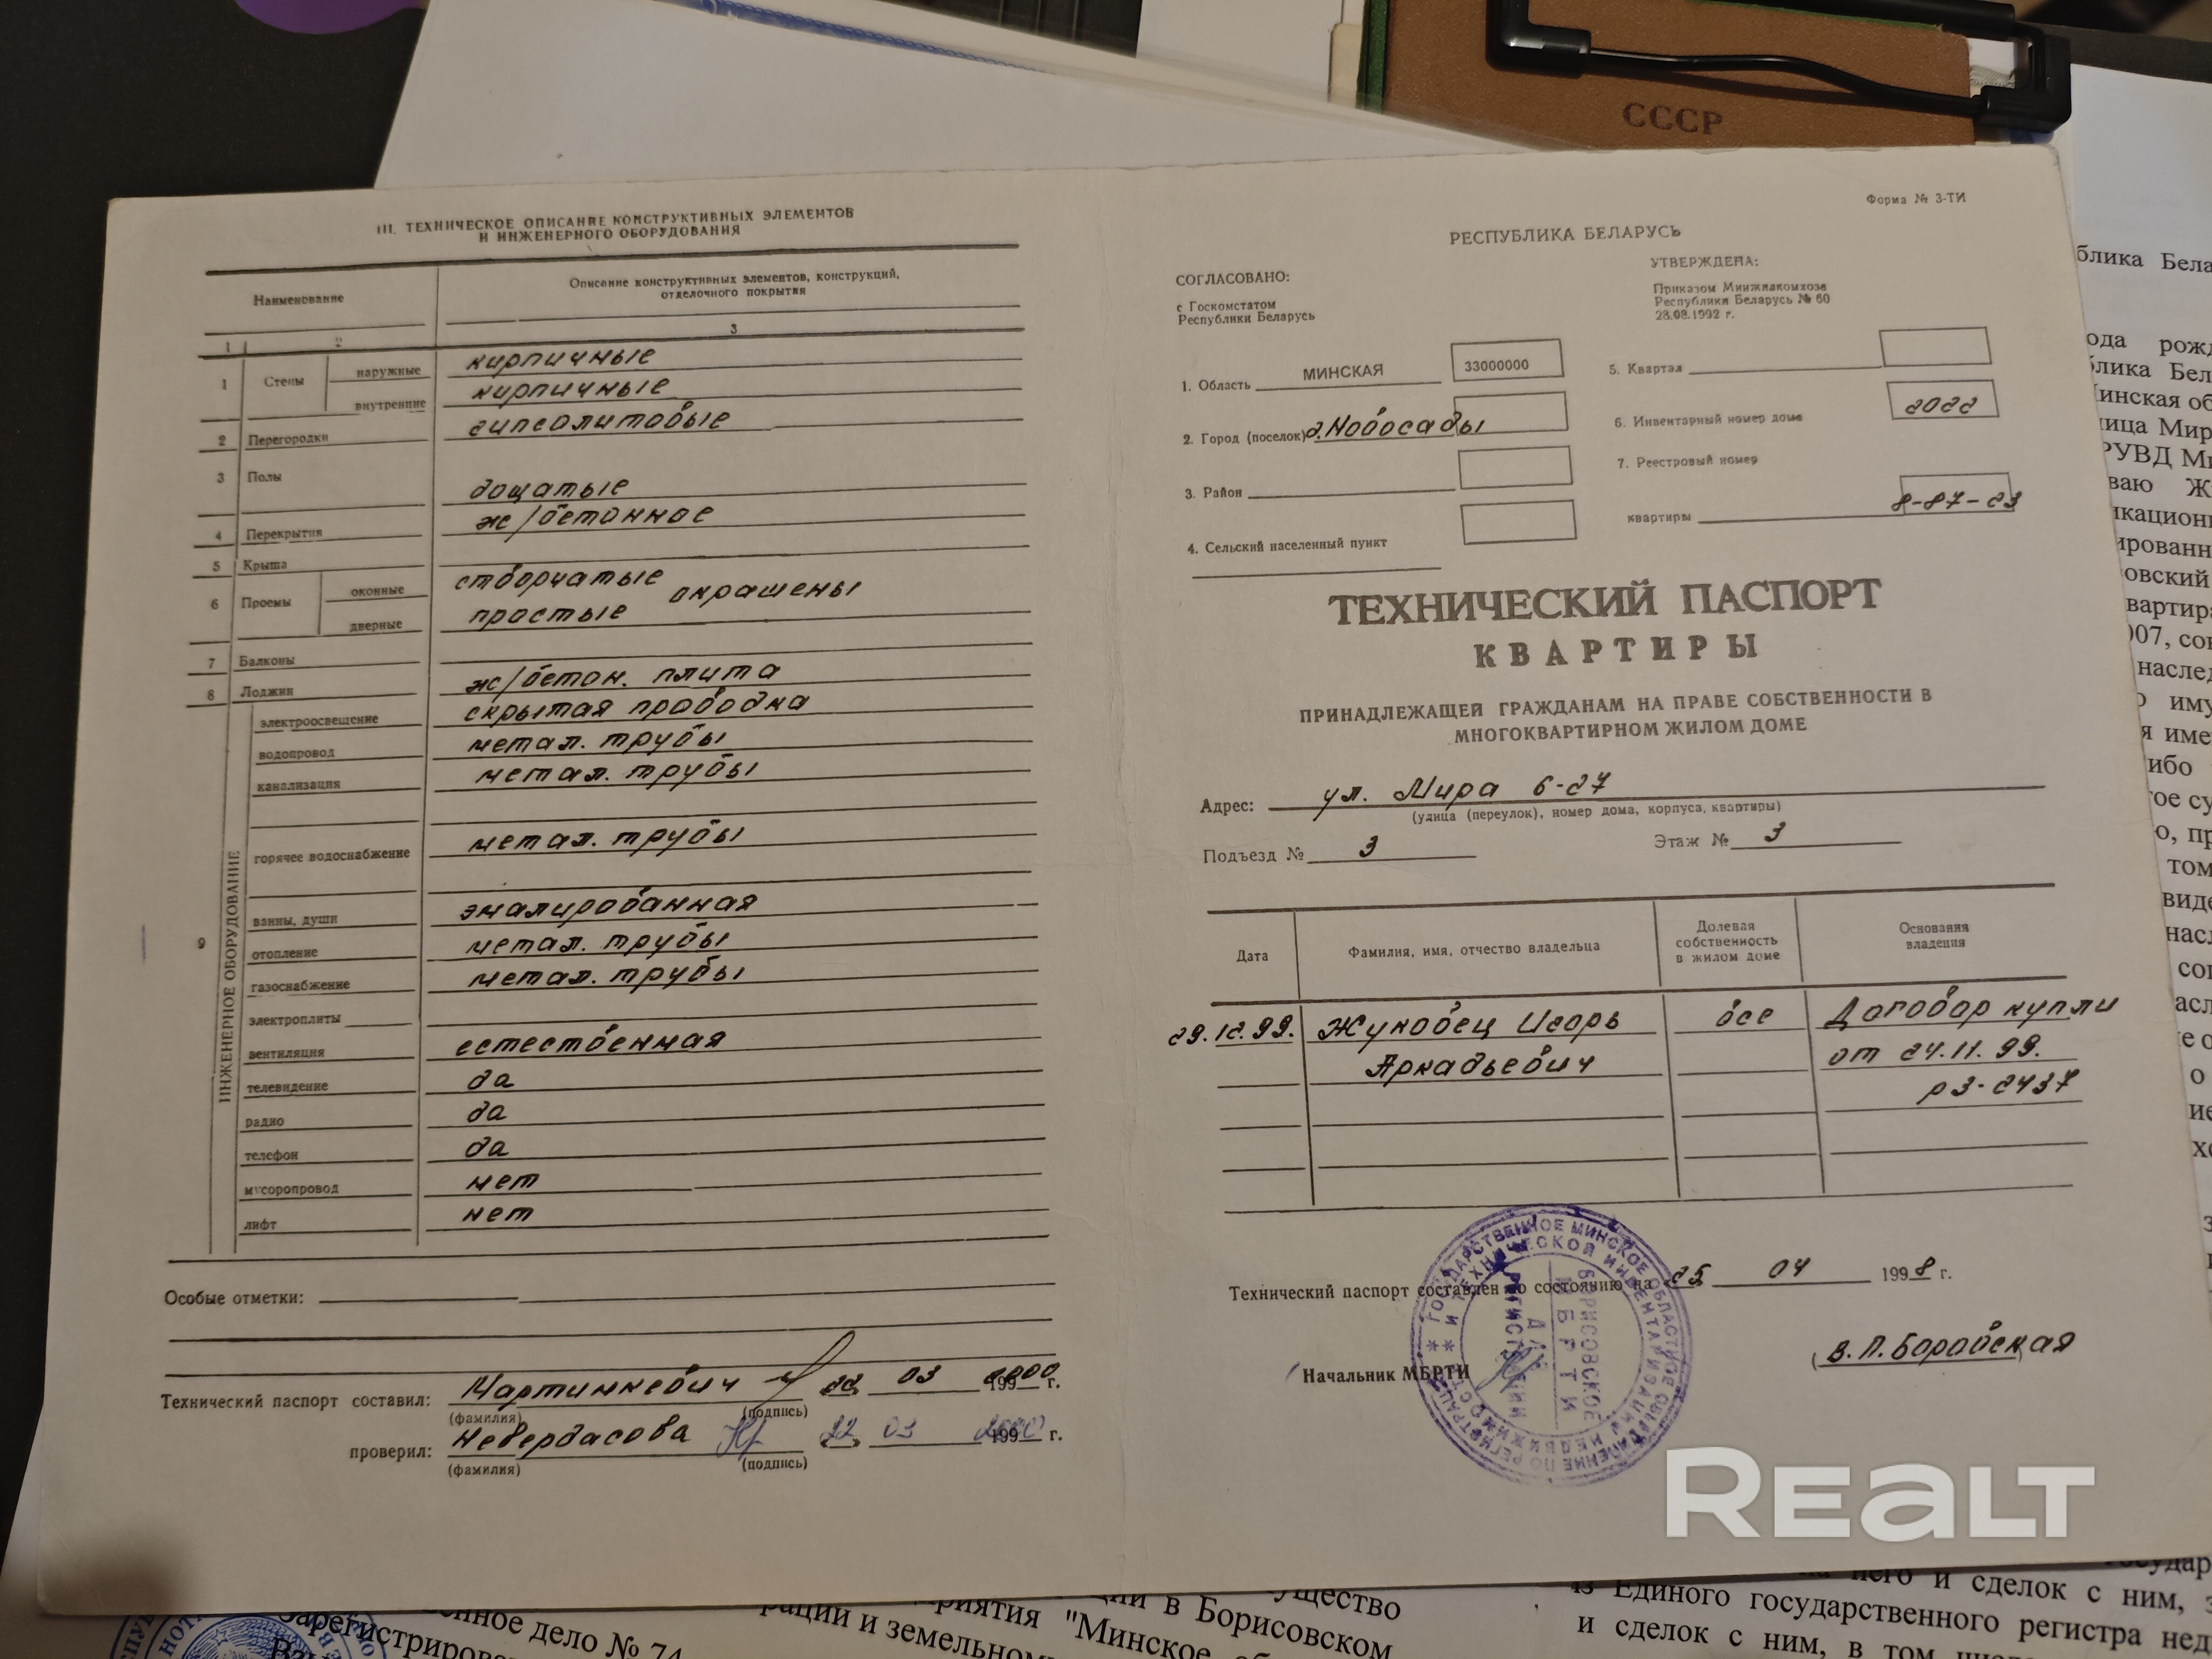 СССР
III. ТЕХНИЧЕСКОЕ ОПИСАНИЕ КОНСТРУКТИВНЫХ ЭЛЕМЕНТОВ
И ИНЖЕНЕРНОГО ОБОРУДОВАНИЯ
Наименование
Описание конструктивных элементов, конструкций,
отделочного покрытия
1 2 3
1 Стены наружные кирпичные
внутренние кирпичные
2 Перегородки гипсолитовые
3 Полы дощатые
4 Перекрытия ж/бетонное
5 Крыша
6 Проемы оконные створчатые окрашены
дверные простые
7 Балконы
8 Лоджии ж/бетон. плита
9 ИНЖЕНЕРНОЕ ОБОРУДОВАНИЕ
электроосвещение скрытая проводка
водопровод метал. трубы
канализация метал. трубы
горячее водоснабжение метал. трубы
ванны, души эмалированная
отопление метал. трубы
газоснабжение метал. трубы
электроплиты
вентиляция естественная
телевидение да
радио да
телефон да
мусоропровод нет
лифт нет
Особые отметки:
Технический паспорт составил: Мартинкевич 22 03 2000 199 г.
(фамилия) (подпись)
проверил: Невердасова 22 03 2000 199 г.
(фамилия) (подпись)
Форма № 3-ТИ
РЕСПУБЛИКА БЕЛАРУСЬ
СОГЛАСОВАНО:
с Госкомстатом
Республики Беларусь
УТВЕРЖДЕНА:
Приказом Минжилкомхоза
Республики Беларусь № 60
28.08.1992 г.
1. Область МИНСКАЯ 33000000
2. Город (поселок) д.Новосады
3. Район
4. Сельский населенный пункт
5. Квартал
6. Инвентарный номер дома 2022
7. Реестровый номер
квартиры 8-87-23
ТЕХНИЧЕСКИЙ ПАСПОРТ
КВАРТИРЫ
ПРИНАДЛЕЖАЩЕЙ ГРАЖДАНАМ НА ПРАВЕ СОБСТВЕННОСТИ В
МНОГОКВАРТИРНОМ ЖИЛОМ ДОМЕ
Адрес: ул. Мира 6-27
(улица (переулок), номер дома, корпуса, квартиры)
Подъезд № 3 Этаж № 3
Дата
Фамилия, имя, отчество владельца
Долевая
собственность
в жилом доме
Основания
владения
29.12.99. Жуковец Игорь все Договор купли
Аркадьевич от 24.11.99.
р3-2437
Технический паспорт составлен по состоянию на 25 04 1998 г.
Начальник МБРТИ (В.П.Боровская)
ГОСУДАРСТВЕННОЕ МИНСКОЕ ОБЛАСТНОЕ
И ТЕХНИЧЕСКОЙ ИНВЕНТАРИЗАЦИИ
БОРИСОВСКОЕ
МБРТИ
REALT
блика Бела
ода рожд
инская об
ица Мир
РУВД Ми
ваю Ж
007, сов
наслед
иму
ибо
том
виде
о
енное дело № 74
Зарегистриров
рации и земельном
приятия "Минское об
ции в Борисовском
ущество
него и сделок с ним, з
из Единого государственного регистра нед
и сделок с ним, в том числе